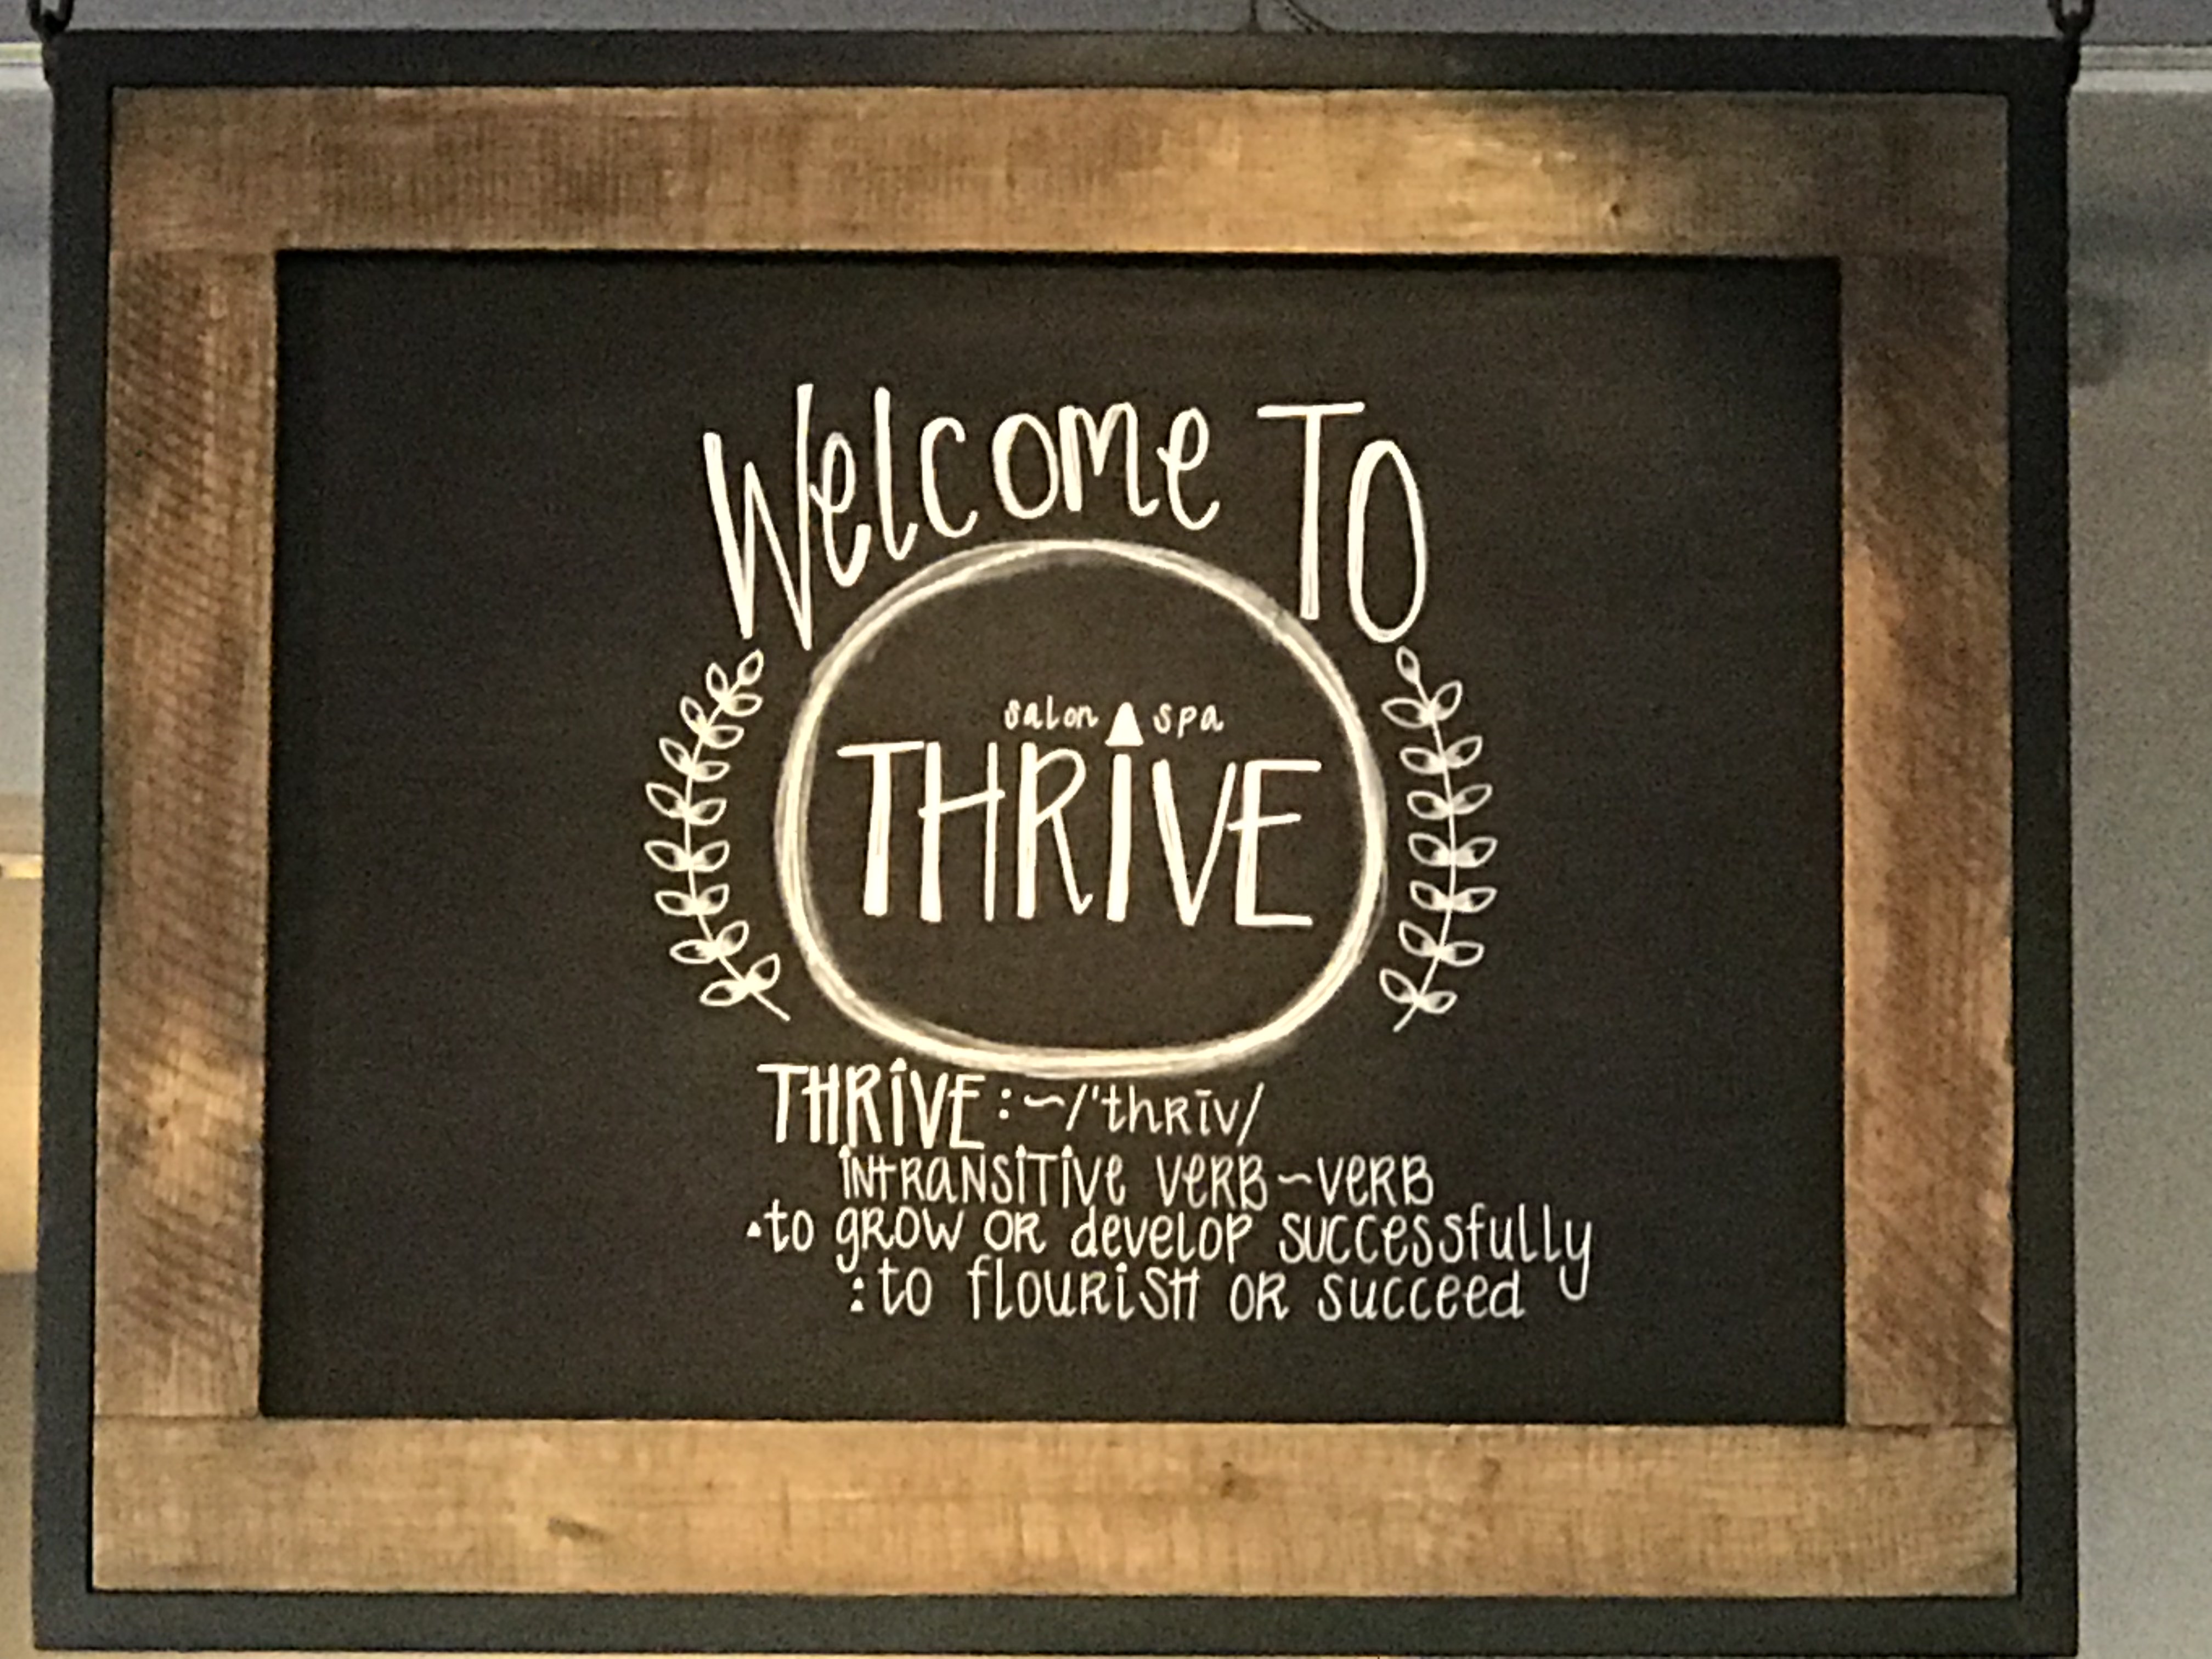 Welcome To
salon spa
THRiVE
THRiVE :~/'thrīv/
intransitive verb~verb
to grow or develop successfully
: to flourish or succeed